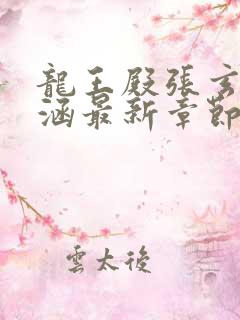 龍王殿張玄
涵最新章節
雲太後